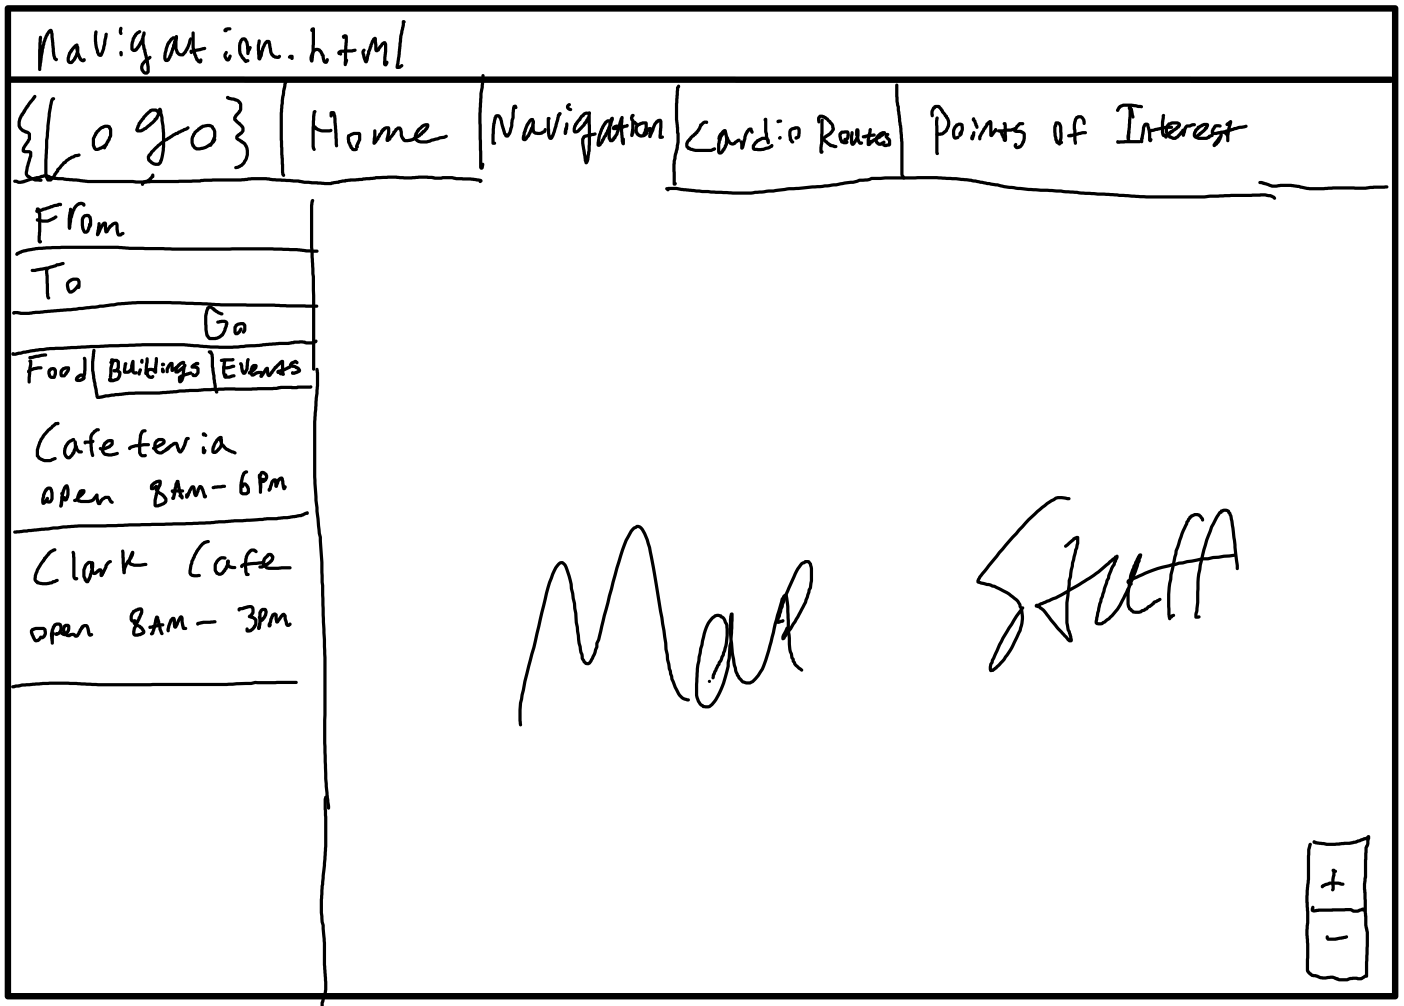 Navigation.html
{Logo} Home Navigation Cardio Routes Points of Interest
From
To
Go
Food Buildings Events
Cafeteria
open 8AM - 6PM
Clark Cafe
open 8AM - 3PM
Map Stuff
+
-